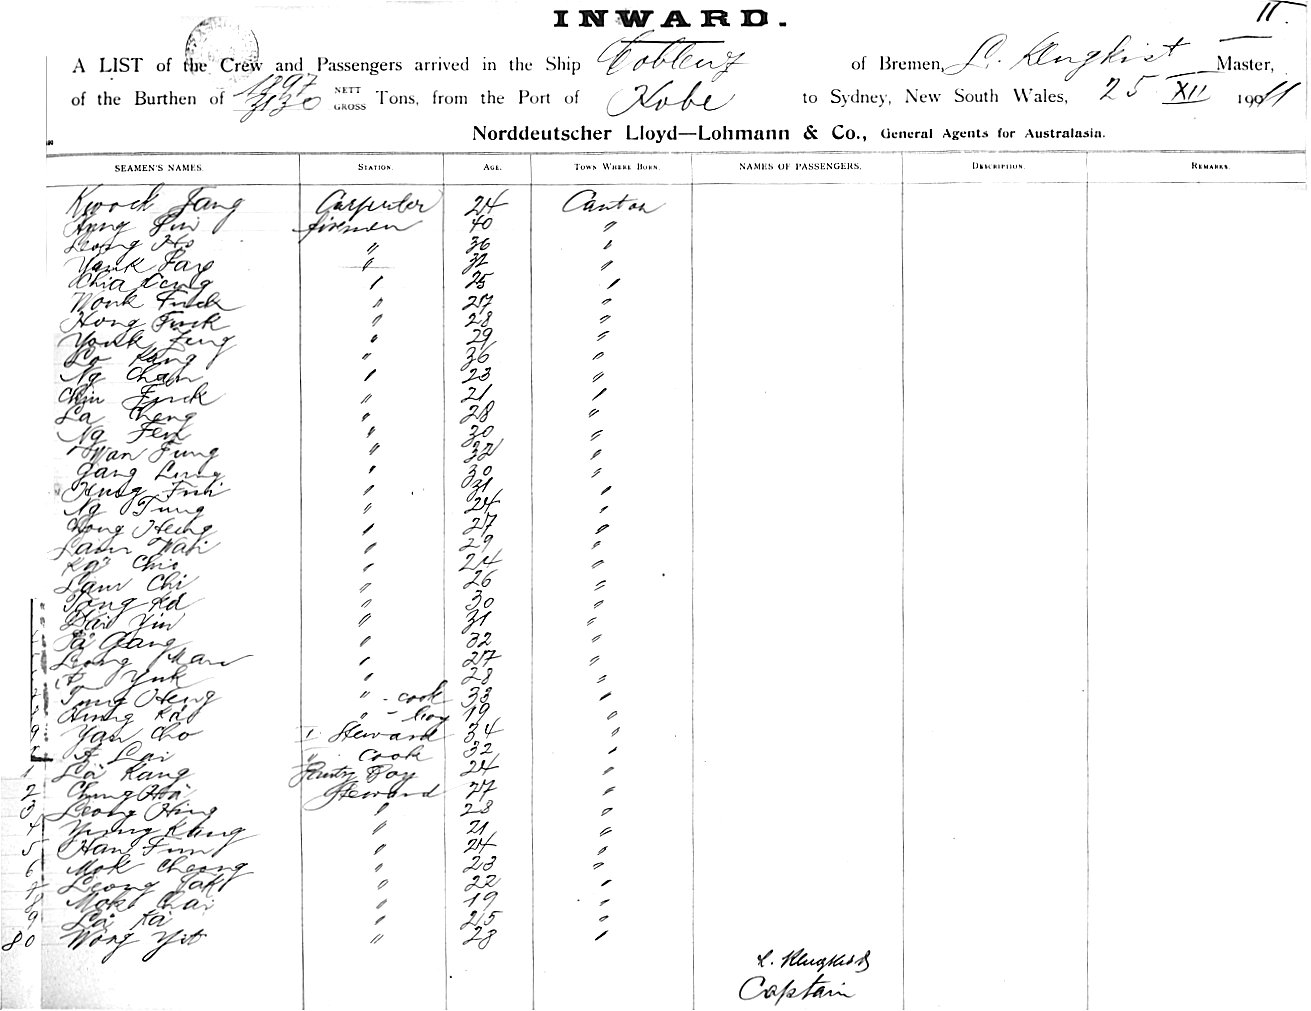 II.
INWARD.
A LIST of the Crew and Passengers arrived in the Ship Coblenz of Bremen, L. Klugkist Master,
of the Burthen of 1797 NETT 3130 GROSS Tons, from the Port of Kobe to Sydney, New South Wales, 25 XII 1911
Norddeutscher Lloyd—Lohmann & Co., General Agents for Australasia.
SEAMEN'S NAMES. STATION. AGE. TOWN WHERE BORN. NAMES OF PASSENGERS. DESCRIPTION. REMARKS.
Kwock Fang Carpenter 24 Canton
Hung firemen 40 "
Leong Ho " 36 "
" 32 "
Chia " 25 "
Wonk Fuck " 27 "
Hong Fuck " 28 "
Yonk Feng " 29 "
Lo Kang " 36 "
Ng Chan " 23 "
Chin Fuck " 21 "
La Cheng " 28 "
Ng Fen " 30 "
Wan Fung " 32 "
Gang Lung " 30 "
Hung " 31 "
Ng Tung " 24 "
Hong Heng " 27 "
Lam " 29 "
" 24 "
Lam Chi " 26 "
Tong " 30 "
Yin " 31 "
Gang " 32 "
Leong Man " 27 "
Yuk " 28 "
Tong Heng " - cook 33 "
Hung Kä " - boy 19 "
9 Yan Cho I. Steward 34 "
Lai " cook 32 "
1 Lä Kang Pantry Boy 24 "
2 Chung Hä Steward 27 "
3 Leong Hing " 28 "
4 Yung Kang " 21 "
5 Han Fun " 24 "
6 Mok Cheong " 23 "
7 Leong Tak " 22 "
8 Mok Chai " 19 "
9 Lä Kä " 25 "
80 Wong Yit " 23 "
L. Klugkist
Captain